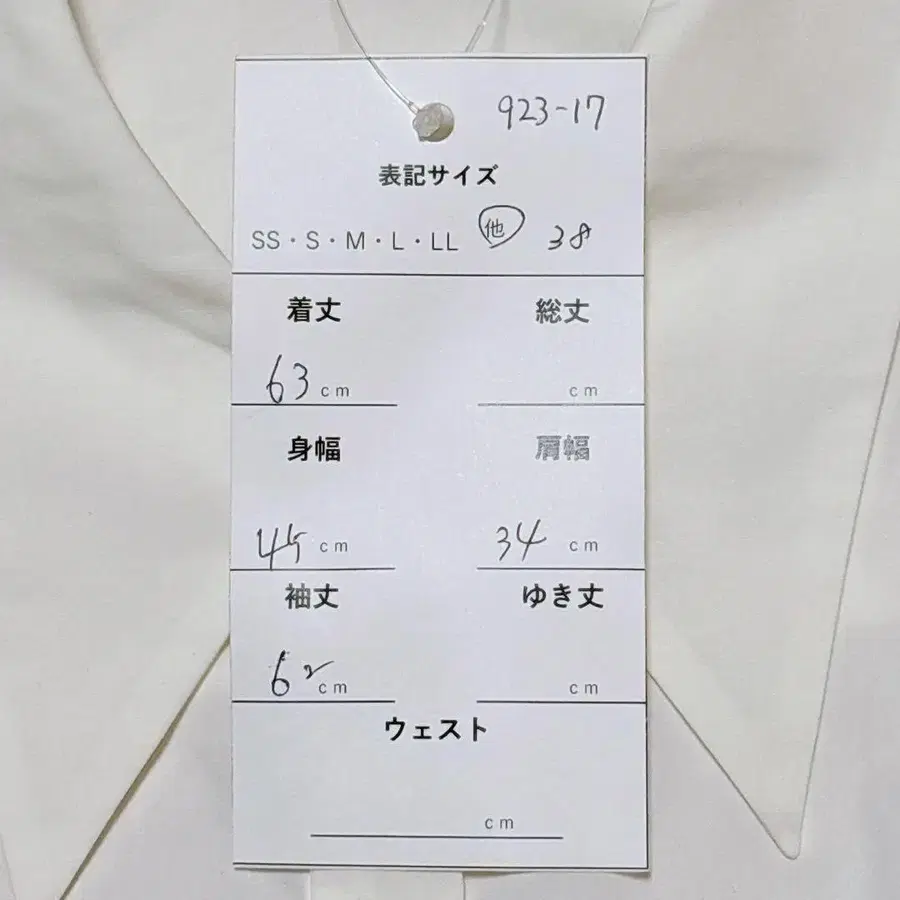 923-17
表記サイズ
SS・S・M・L・LL 他 38
着丈 総丈
63 cm cm
身幅 肩幅
45 cm 34 cm
袖丈 ゆき丈
62 cm cm
ウェスト
cm